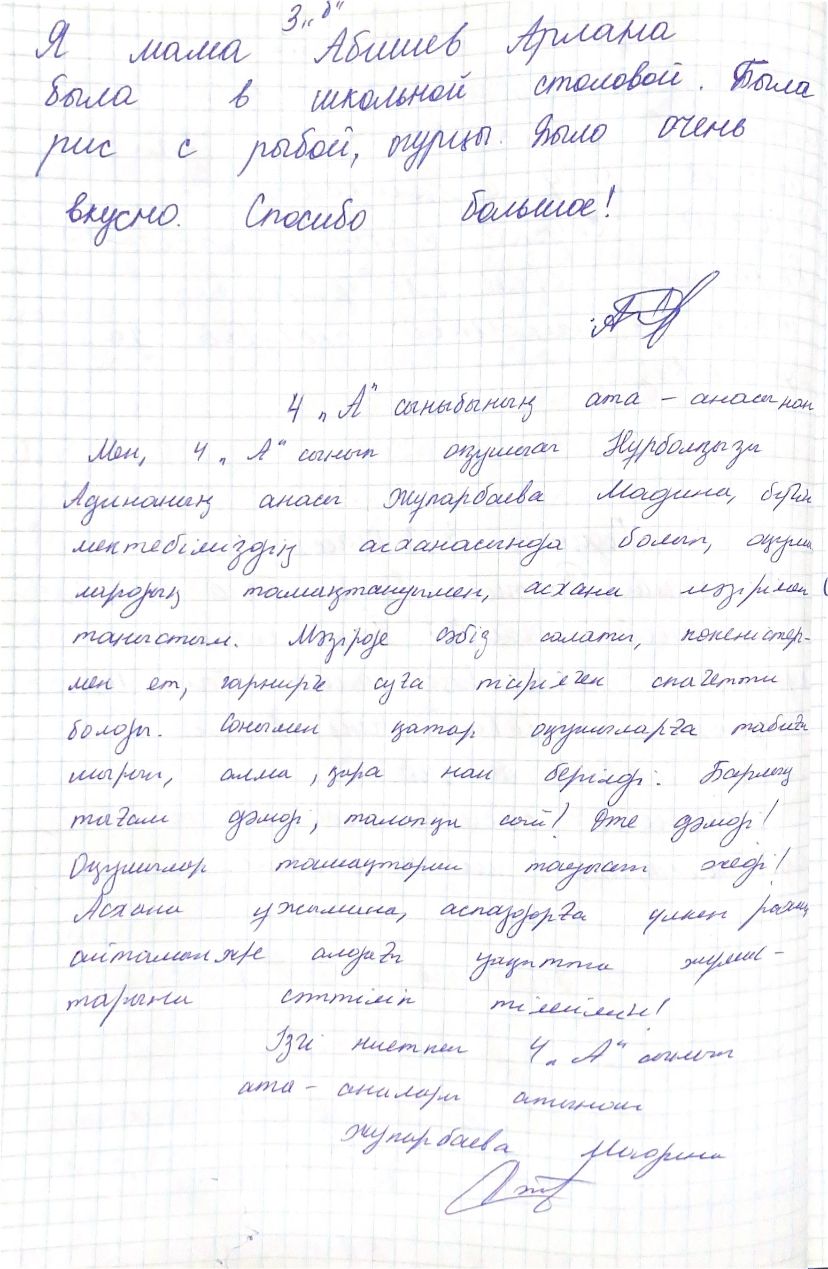 3 „б"
Я мама Абишев Арлана
была в школьной столовой. Была
рис с рыбой, огурцы. Было очень
вкусно. Спасибо большое!
4 „А" сыныбының ата - анасынан
Мен, 4 „А" сынып оқушысы Нұрболқызы
Адинаның анасы Жупарбаева Мадина, бүгін
мектебіміздің асханасында болып, оқушы
лардың тамақтануымен, асхана мәзірімен
таныстым. Мәзірде сәбіз салаты, көкөністер-
мен ет, гарнирге суға пісірілген спагетти
болды. Сонымен қатар оқушыларға табиғи
шырын, алма, қара нан берілді. Барлық
тағам дәмді, талапқа сай! Өте дәмді!
Оқушылар тамақтарын тауысып жеді!
Асхана ұжымына, аспаздарға үлкен рахмет
айтамын және алдағы уақытта жұмыс-
тарына сәттілік тілеймін!
Ізгі ниетпен 4 „А" сынып
ата - аналары атынан
Жупарбаева Мадина